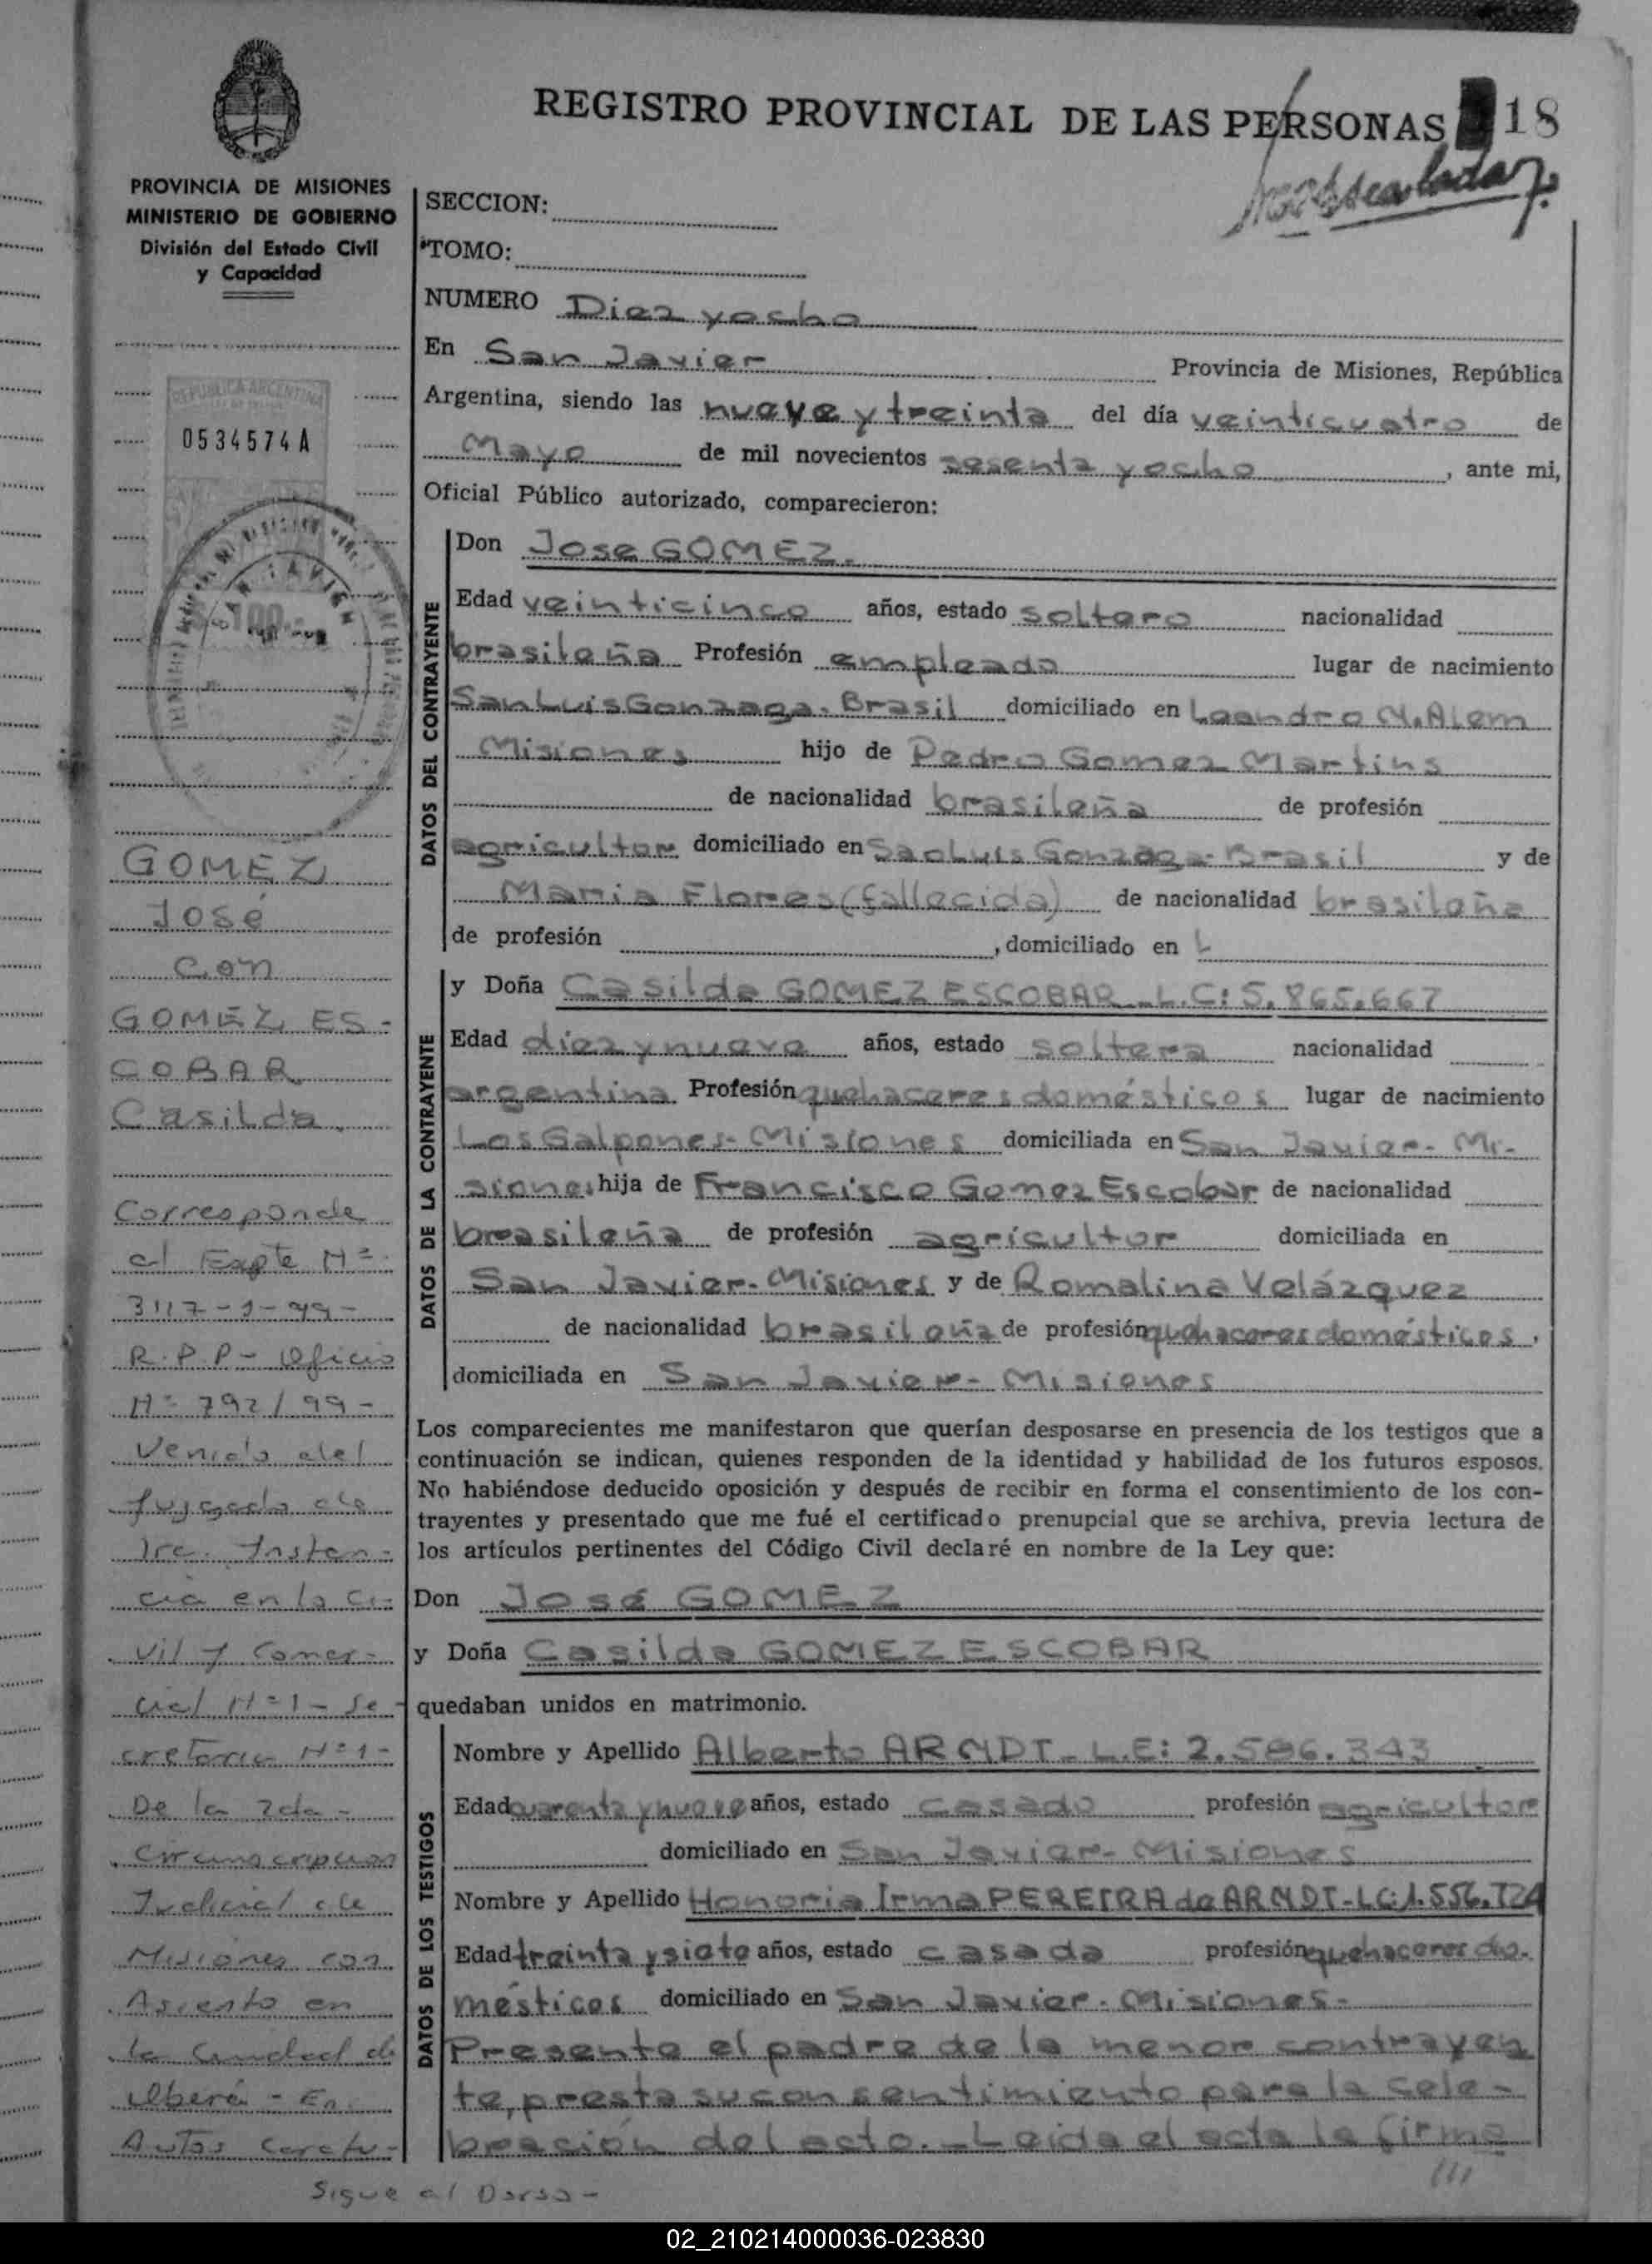 REGISTRO PROVINCIAL DE LAS PERSONAS 18
PROVINCIA DE MISIONES
MINISTERIO DE GOBIERNO
División del Estado Civil
y Capacidad
REPUBLICA ARGENTINA
0534574 A
GOMEZ
José
con
GOMEZ ES-
COBAR
Casilda.
Corresponde
al Expte Nº
3117-1-99-
R.P.P- Oficio
Nº 792/99-
Venido del
Juzgado de
1ra. Instan-
cia en lo Ci-
vil y Comer-
cial Nº1- Se-
cretaria Nº1-
De la 2da-
Circunscripcion
Judicial de
Misiones con
Asiento en
la Ciudad de
Oberá - En
Autos Caratu-
Sigue al Dorso-
SECCION:
TOMO:
NUMERO Diez y ocho
En San Javier Provincia de Misiones, República
Argentina, siendo las nueve y treinta del día veinticuatro de
Mayo de mil novecientos sesenta y ocho, ante mi,
Oficial Público autorizado, comparecieron:
DATOS DEL CONTRAYENTE
Don Jose GOMEZ.
Edad veinticinco años, estado soltero nacionalidad
brasileña Profesión empleado lugar de nacimiento
San Luis Gonzaga. Brasil domiciliado en Leandro N. Alem
Misiones hijo de Pedro Gomez Martins
de nacionalidad brasileña de profesión
agricultor domiciliado en Sao Luis Gonzaga- Brasil y de
Maria Flores (fallecida) de nacionalidad brasileña
de profesión , domiciliado en
DATOS DE LA CONTRAYENTE
y Doña Casilda GOMEZ ESCOBAR - L.C: 5.865.667
Edad diez y nueve años, estado soltera nacionalidad
argentina Profesión quehaceres domésticos lugar de nacimiento
Los Galpones- Misiones domiciliada en San Javier- Mi-
siones hija de Francisco Gomez Escobar de nacionalidad
brasileña de profesión agricultor domiciliada en
San Javier- Misiones y de Romalina Velázquez
de nacionalidad brasileña de profesión quehaceres domésticos,
domiciliada en San Javier- Misiones
Los comparecientes me manifestaron que querían desposarse en presencia de los testigos que a
continuación se indican, quienes responden de la identidad y habilidad de los futuros esposos.
No habiéndose deducido oposición y después de recibir en forma el consentimiento de los con-
trayentes y presentado que me fué el certificado prenupcial que se archiva, previa lectura de
los artículos pertinentes del Código Civil declaré en nombre de la Ley que:
Don José GOMEZ
y Doña Casilda GOMEZ ESCOBAR
quedaban unidos en matrimonio.
DATOS DE LOS TESTIGOS
Nombre y Apellido Alberto ARNDT - L.E: 2.586.343
Edad cuarenta y nueve años, estado casado profesión agricultor
domiciliado en San Javier- Misiones
Nombre y Apellido Honoria Irma PEREIRA de ARNDT- LC: 1.556.724
Edad treinta y siete años, estado casada profesión quehaceres do-
mésticos domiciliado en San Javier- Misiones-
Presente el padre de la menor contrayen
te, presta su consentimiento para la cele-
bración del acto.- Leida el acta la firma
///
02_210214000036-023830